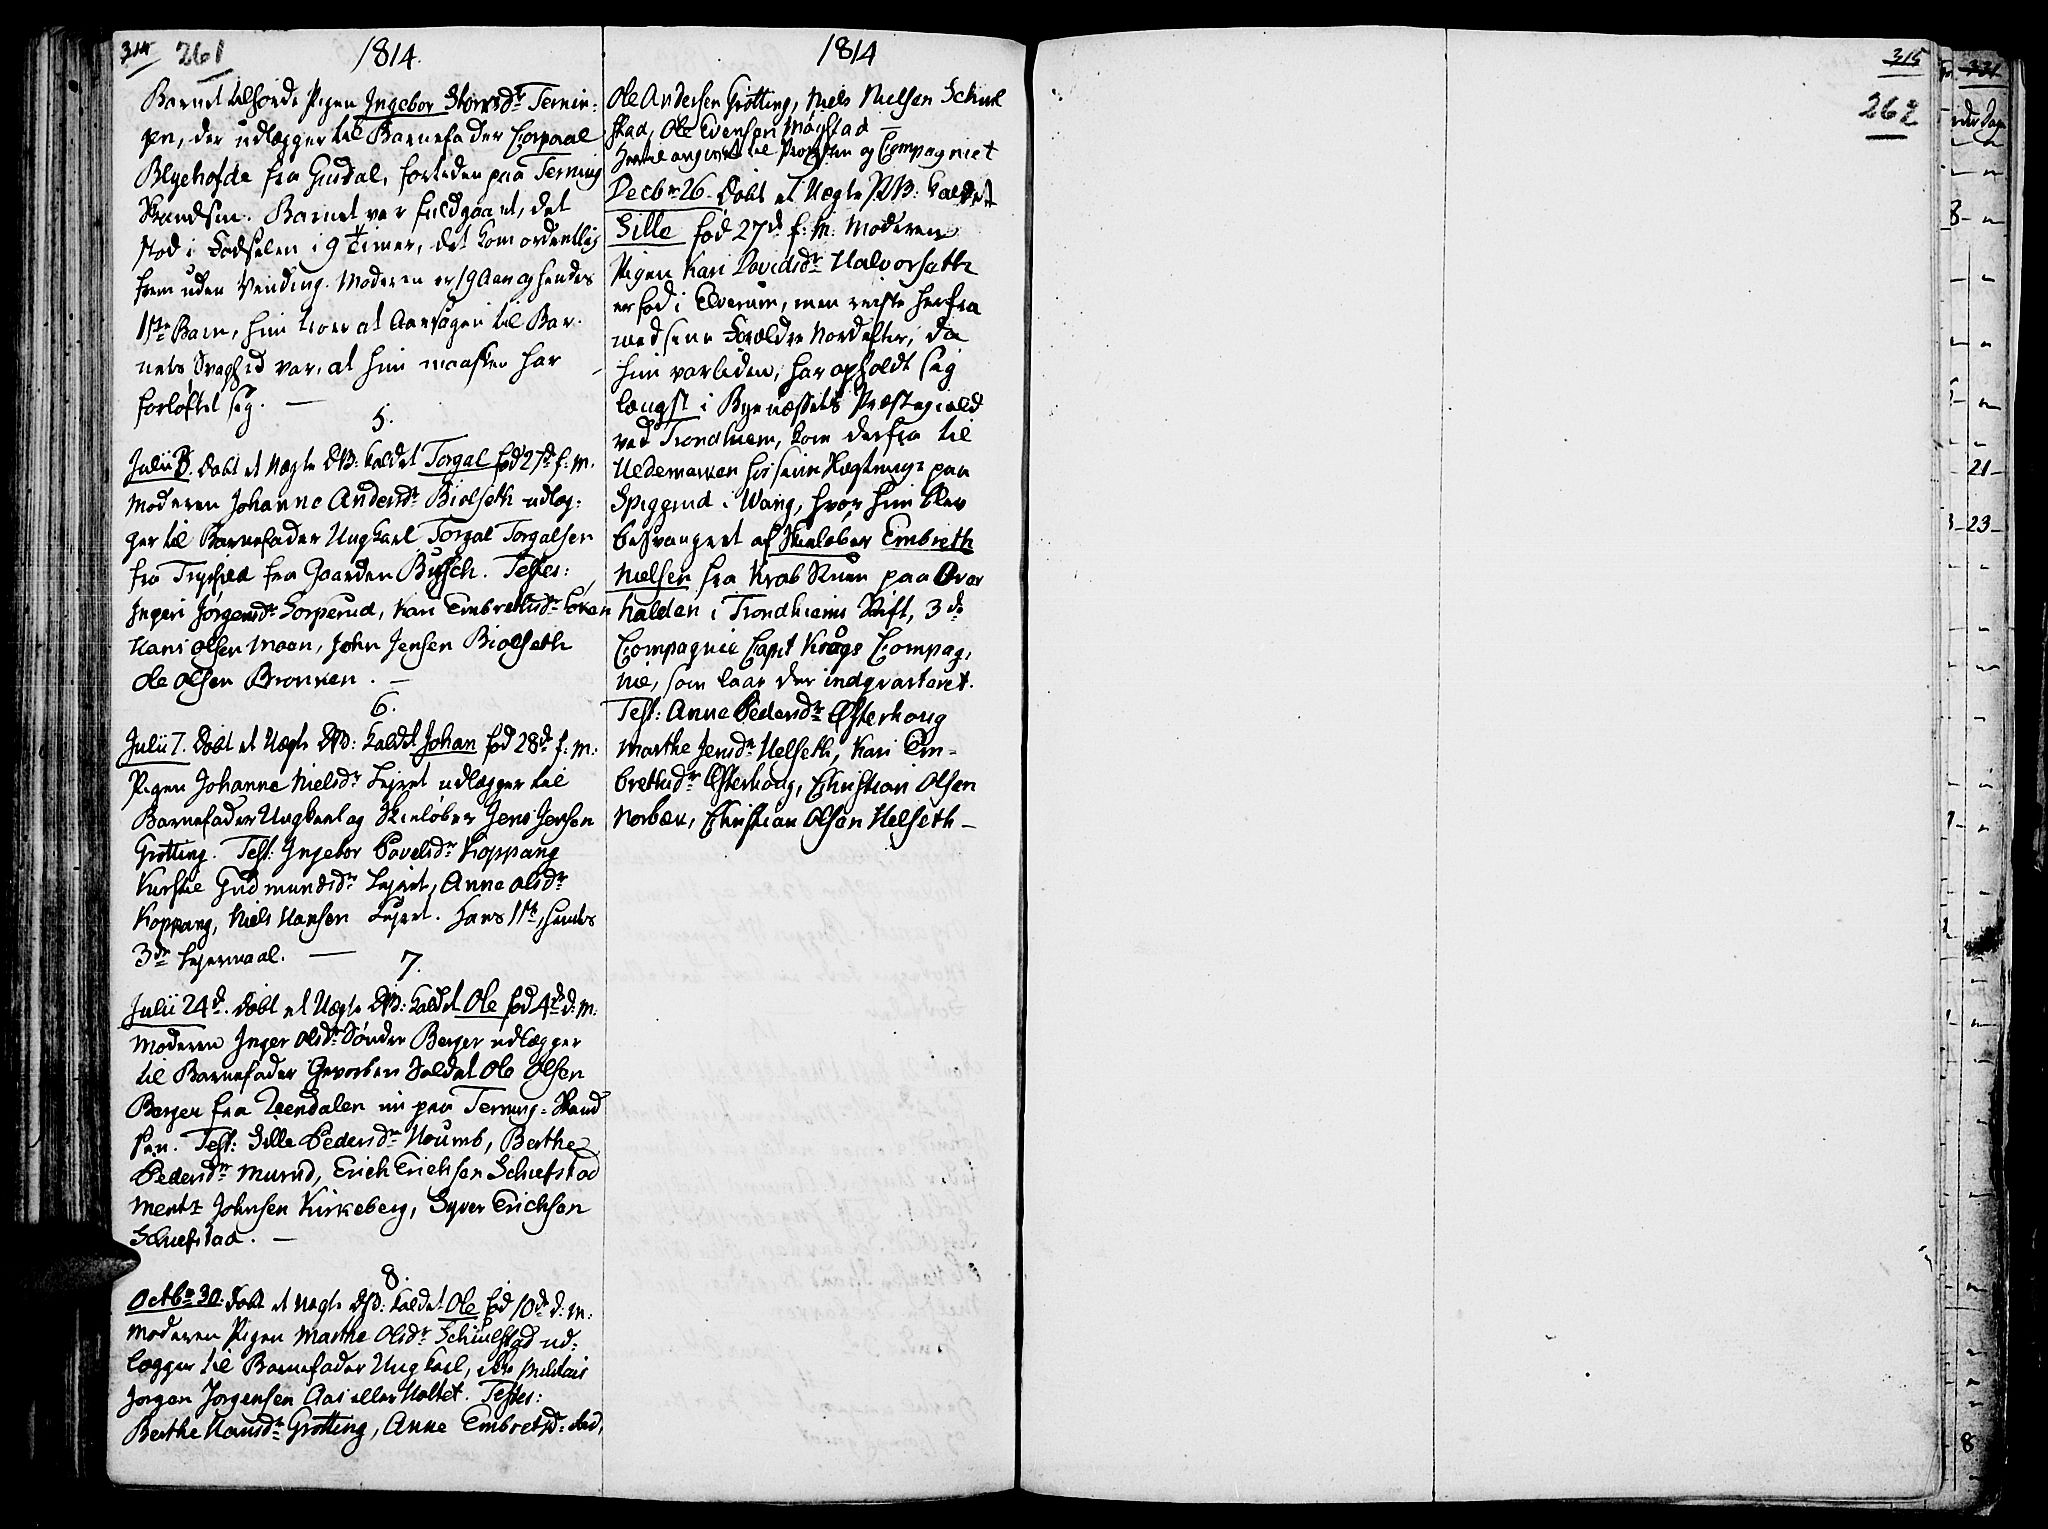 314 261 1814.
Barnet tilhørde Pigen Ingebor Storsdr Ternin-
gen, der udlægger til Barnefader Corporal
Blyehofde fra Gusdal, forleden paa Terning
Skandsen. Barnet var fuldgaaet, det
stod i Fødselen i 9 Timer, det kom ordentlig
frem uden Vending. Moderen er 19 Aar og hendes
1ste Barn, hun troer at Aarsagen til Bar-
nets Svaghed var, at hun maaskee har
forløftet sig. —
5.
Julii 3. Døbt et Uægte DB: kaldet Torgal fød 27de f: M.
Moderen Johanne Andersdr Biolseth udlæg-
ger til Barnefader Ungkarl Torgal Torgalsen
fra Trysild fra Gaarden Büsch. Testes:
Ingeri Jørgensdr Sorperud, Kari Embrethsdr Løken
Hans Olsen Moen, John Jensen Biolseth
Ole Olsen Bronken. —
6.
Julii 7. Døbt et Uægte DB: kaldet Johan fød 28de f: M:
Pigen Johanne Nielsdr Lejret udlægger til
Barnefader Ungkarl og Skieløber Jens Jensen
Grøtting. Test: Ingebor Povelsdr Koppang
Kirstie Gudmundsdr Lejret, Anne Olsdr
Koppang, Niels Hansen Lejret. Hans 1ste, hendes
3de Lejermaal. —
7.
Julii 24de. Døbt et Uægte DB: kaldet Ole fød 4de d: M:
Moderen Inger Olsdr Søndre Berger udlægger
til Barnefader Gevorben Soldat Ole Olsen
Berger fra Reendalen nu paa Terning-Skand
sen. Test: Sille Pedersdr Noumb, Berthe
Pedersdr Murud, Erich Erichsen Schiefstad
Mentz Johnsen Kirkeberg, Syver Erichsen
Schiefstad. —
8.
Octbr 30. Døbt et Uægte DB: kaldet Ole fød 10de d: M:
Moderen Pigen Marthe Olsdr Schiulstad ud-
lægger til Barnefader Ungkarl, ikke Militair
Jørgen Jørgensen Aas eller Holtet. Testes:
Berthe Hansdr Grøtting, Anne Embretsd:
1814
Ole Andersen Grøtting, Niels Nielsen Schiul
stad, Ole Evensen Mogstad —
Hertil angivet til Provsten og Compagniet
Decbr 26. Døbt et Uægte PB: kaldet
Sille fød 27de f: M. Moderen
Pigen Kari Davidsdr Halvorseth
er fød i Elverum, men reiste herfra
med sine Forældre Nordefter, da
hun var liden, har opholdt sig
længst i Byenæssets Præstegield
ved Trondhiem, kom derfra til
Hedemarken hos sine Slægtninge paa
Spiggrud i Wang, hvor hun blev
besvangret af Skieløber Embreth
Nielsen fra Krab Stuen paa Over
halden i Trondhiems Stift, 3de
Compagnie Capit Krogs Compag-
nie, som laae der indqvarteret.
Test: Anne Pedersdr Østerhoug
Marthe Jensdr Helseth, Kari Em-
brethsdr Østerhoug, Christian Olsen
Norbek, Christian Olsen Helseth —
315
262
331
8
21
23
8